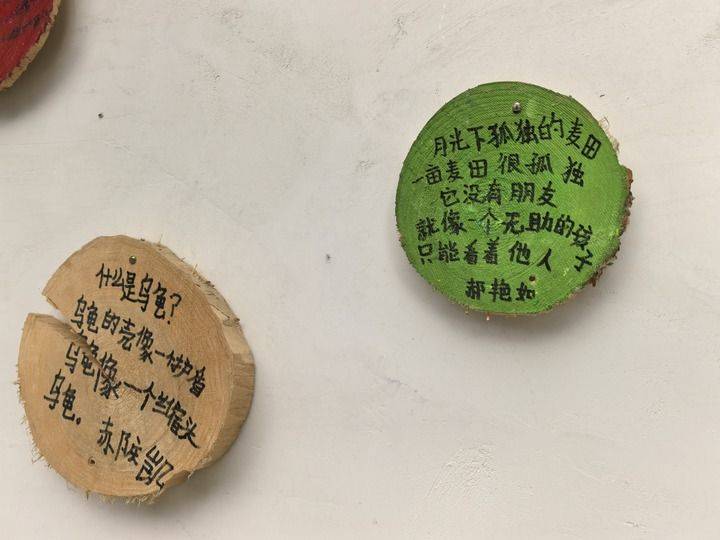 月光下孤独的麦田
一亩麦田很孤独
它没有朋友
就像一个无助的孩子
只能看着他人
郝艳如
什么是乌龟?
乌龟的壳像一个护盾
乌龟像一个缩头
乌龟。